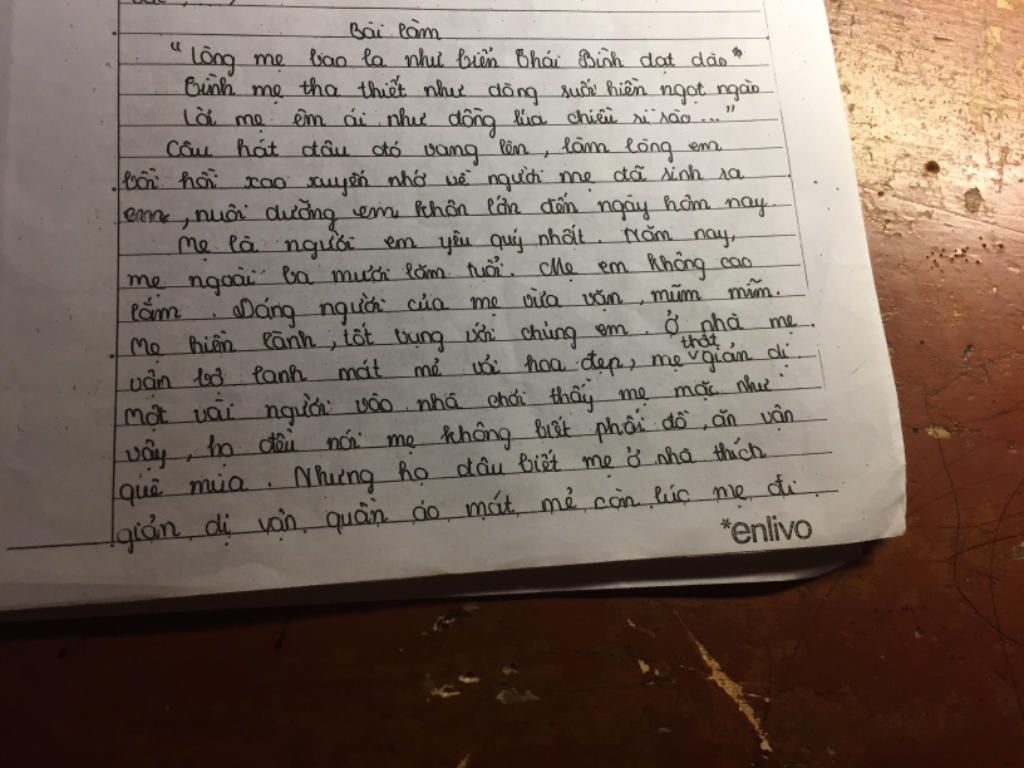 Bài làm
"Lòng mẹ bao la như biển Thái Bình dạt dào"
Tình mẹ tha thiết như dòng suối hiền ngọt ngào
Lời mẹ êm ái như đồng lúa chiều rì rào..."
Câu hát đâu đó vang lên, làm lòng em
bồi hồi xao xuyến nhớ về người mẹ đã sinh ra
em, nuôi dưỡng em khôn lớn đến ngày hôm nay.
Mẹ là người em yêu quý nhất. Năm nay,
mẹ ngoài ba mươi lăm tuổi. Mẹ em không cao
lắm. Dáng người của mẹ vừa vặn, mũm mĩm.
Mẹ hiền lành, tốt bụng với chúng em. Ở nhà mẹ
vận bộ lanh mát mẻ với hoa đẹp, mẹ thật giản dị
Một vài người vào nhà chơi thấy mẹ mặc như
vậy, họ đều nói mẹ không biết phối đồ, ăn vận
quê mùa. Nhưng họ đâu biết mẹ ở nhà thích
giản dị vận quần áo mát mẻ còn lúc mẹ đi
*enlivo